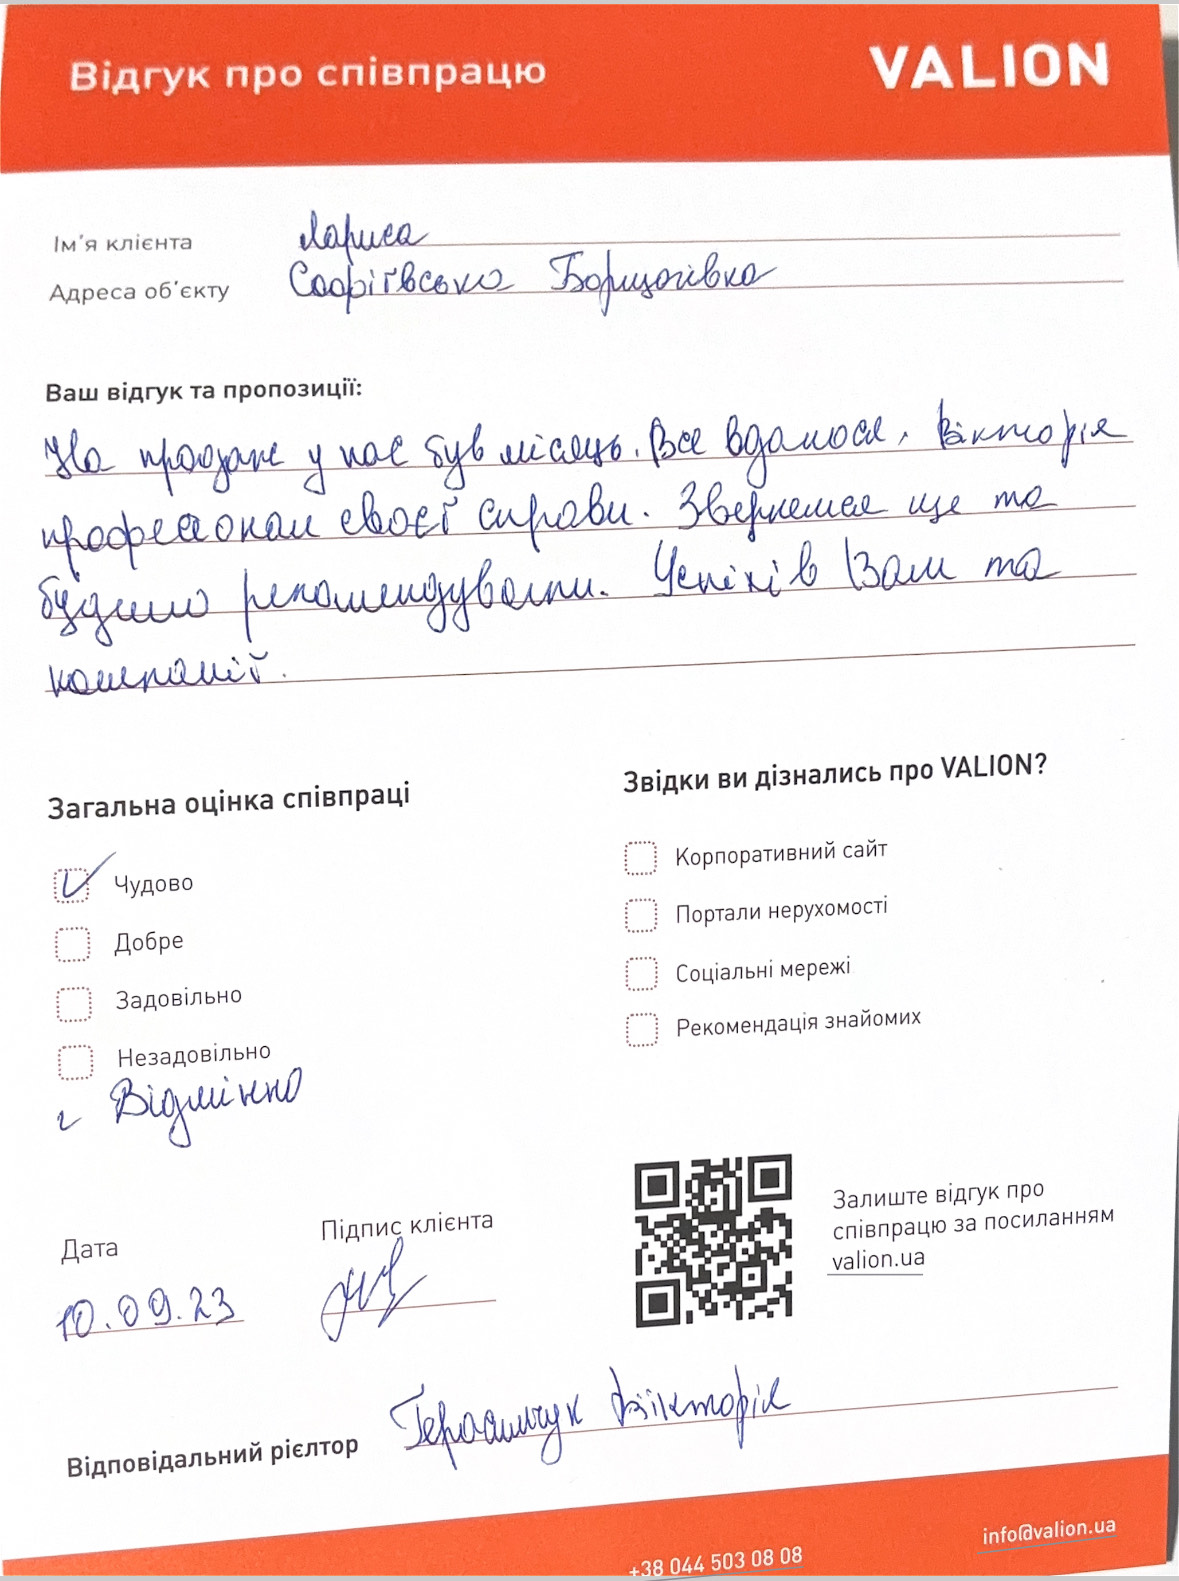 Відгук про співпрацю
VALION
Ім'я клієнта Лариса
Адреса об'єкту Софіївська Борщагівка
Ваш відгук та пропозиції:
На продаж у нас був місяць. Все вдалося, Вікторія
професіонал своєї справи. Звернемся ще та
будемо рекомендувати. Успіхів Вам та
компанії.
Загальна оцінка співпраці
Чудово
Добре
Задовільно
Незадовільно
Відмінно
Звідки ви дізнались про VALION?
Корпоративний сайт
Портали нерухомості
Соціальні мережі
Рекомендація знайомих
Дата
10.09.23
Підпис клієнта
Залиште відгук про
співпрацю за посиланням
valion.ua
Відповідальний рієлтор Герасимчук Вікторія
+38 044 503 08 08
info@valion.ua